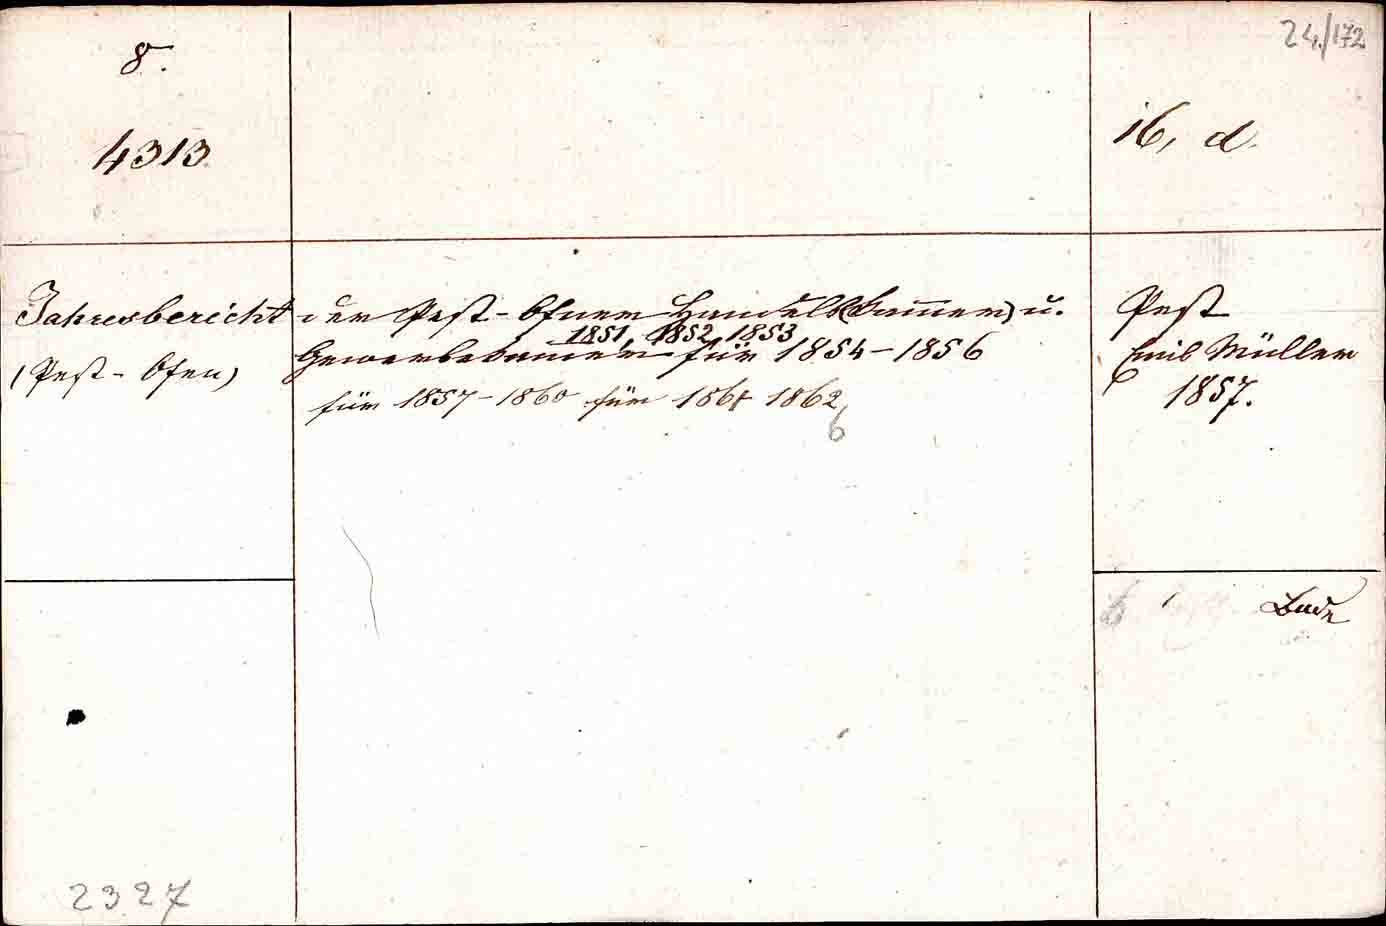 24/172
8.
4313.
16, d.
Jahresbericht der Pest-Ofner Handels(kammer) u.
1851, 1852, 1853
(Pest-Ofen) Gewerbekammer für 1854-1856
für 1857-1860 für 1861 1862
6
Pest
Emil Müller
1857.
2327